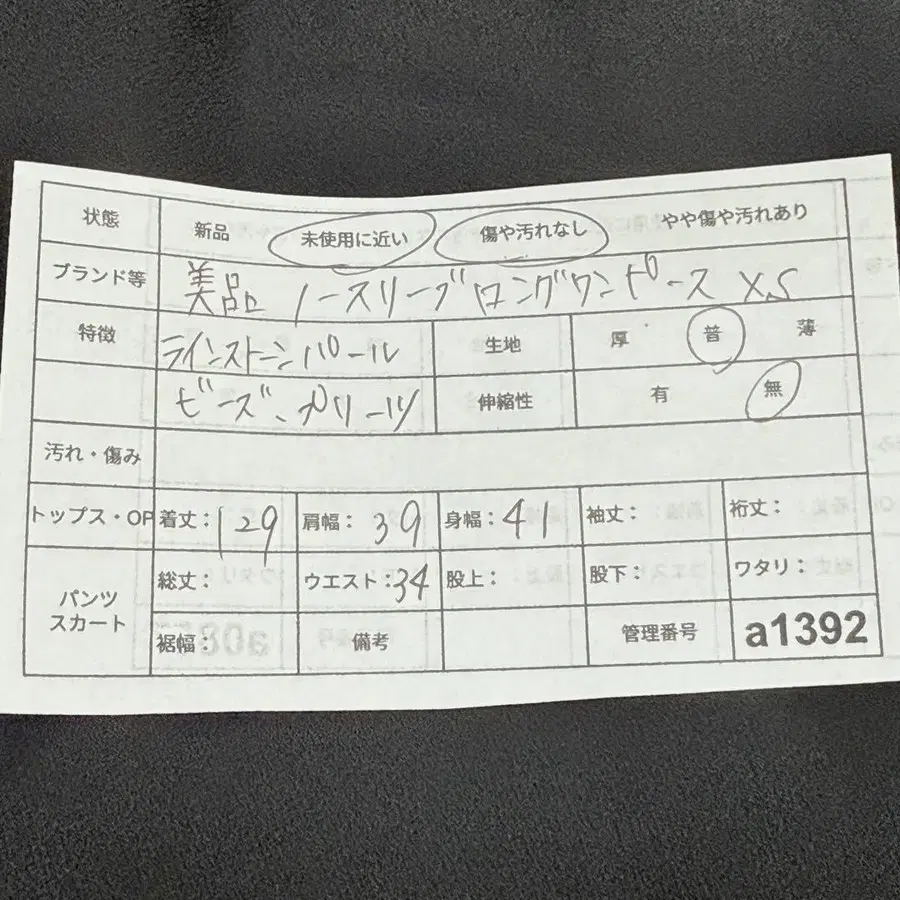 状態 新品 未使用に近い 傷や汚れなし やや傷や汚れあり
ブランド等 美品 ノースリーブロングワンピース XS
特徴 ラインストーンパール 生地 厚 普 薄
ビーズ・プリーツ 伸縮性 有 無
汚れ・傷み
トップス・OP 着丈: 129 肩幅: 39 身幅: 41 袖丈: 裄丈:
パンツ スカート 総丈: ウエスト: 34 股上: 股下: ワタリ:
裾幅: 備考 管理番号 a1392